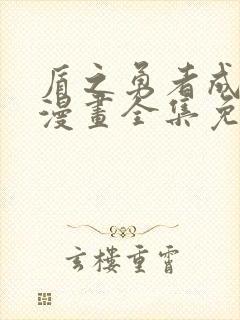 盾之勇者成
漫畫全集免
玄樓重霄